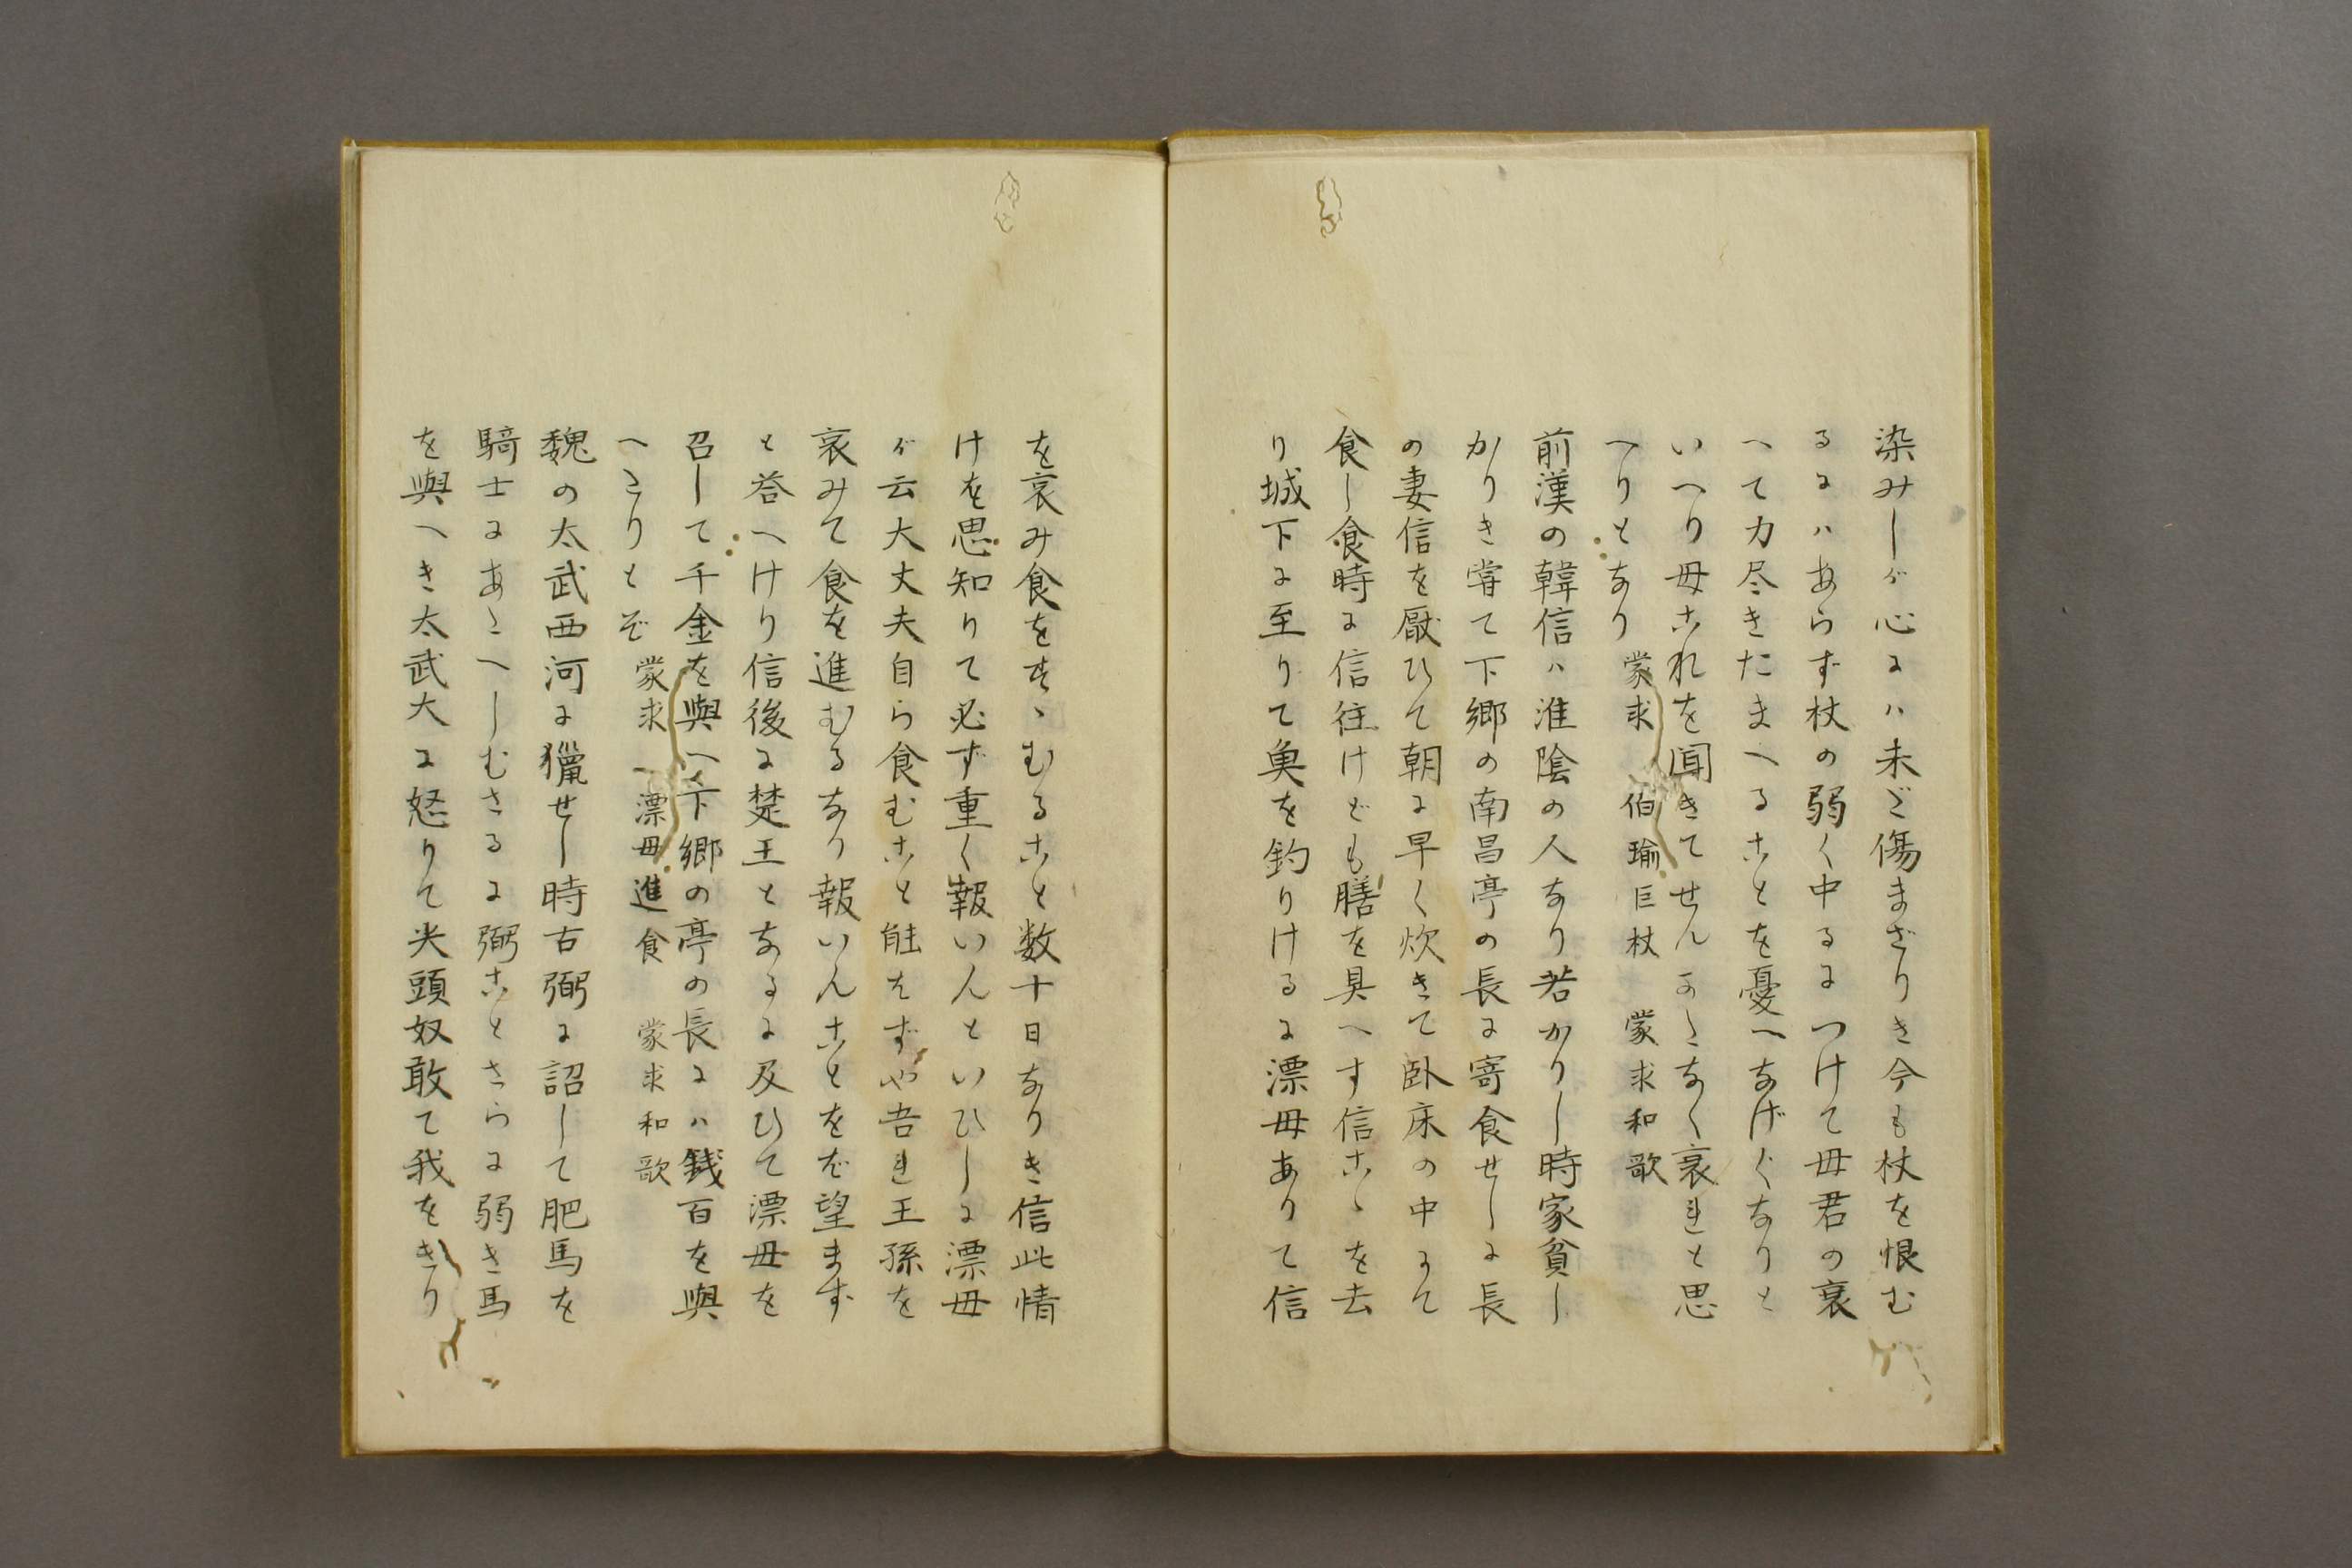 染みしが心には未ど傷まざりき今も杖を恨む
るにハあらず杖の弱く中るにつけて母君の衰
へて力尽きたまへることを憂へなげくなりと
いへり母これを聞きてせんかたなく哀れと思
へりとなり 蒙求 伯瑜巨杖 蒙求和歌
前漢の韓信ハ淮陰の人なり若かりし時家貧し
かりき嘗て下郷の南昌亭の長に寄食せしに長
の妻信を厭ひて朝に早く炊きて臥床の中にて
食し食時に信往けども膳を具へす信こゝを去
り城下に至りて魚を釣りけるに漂母ありて信
を哀み食をすゝむること数十日なりき信此情
けを思知りて必ず重く報いんといひしに漂母
が云大丈夫自ら食むこと能はずや吾れ王孫を
哀みて食を進むるなり報いんことをば望ます
と答へけり信後に楚王となるに及ひて漂母を
召して千金を與へ下郷の亭の長にハ銭百を與
へたりとぞ 蒙求 漂母進食 蒙求和歌
魏の太武西河に獵せし時古弼に詔して肥馬を
騎士にあたへしむさるに弼ことさらに弱き馬
を與へき太武大に怒りて尖頭奴敢て我をきり